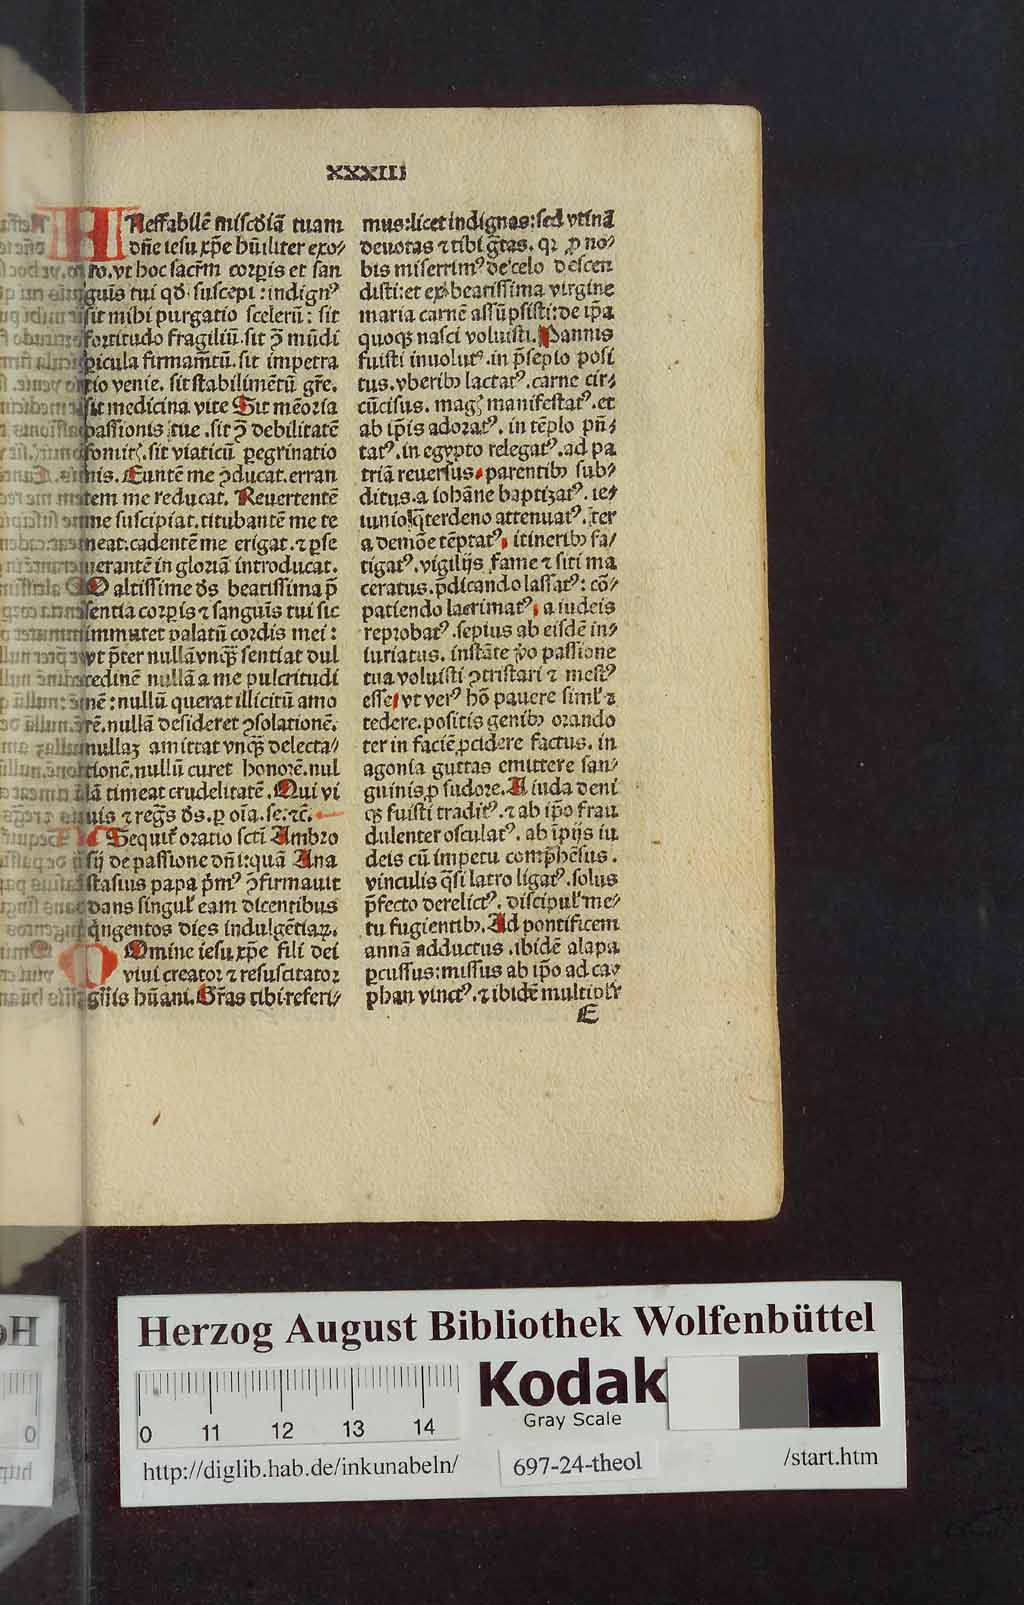 XXXIII
INeffabilē misc̄diā tuam
dn̄e iesu xp̄e hūiliter exo-
ro. vt hoc sacr̄m corpīs et san
guīs tui qd̄ suscepi : indignꝰ
sit mihi purgatio scelerū : sit
fortitudo fragiliū . sit ꝯ mūdi
pericula firmam̄tū . sit impetra
tio venie . sit stabilimētū gr̄e.
sit medicina vite Sit mēoria
passionis tue . sit ꝯ debilitatē
. sit viaticū peregrinatio
nis . Euntē me ꝯducat . erran
tem me reducat. Reuertentē
me suscipiat . titubantē me te
neat . cadentē me erigat . ⁊ ꝑse
uerantē in gloriā introducat.
O altissime ds̄ beatissima p̄
sentia corpīs ⁊ sanguīs tui sic
immutet palatū cordis mei :
vt p̄ter nullā vnqꝫ̄ sentiat dul
cedinē nullā a me pulcritudi
nē : nullū querat illicitū amo
rē . nullā desideret ꝯsolationē.
nullaꝫ amittat vnqꝫ̄ delecta-
tionē . nullū curet honorē . nul
lā timeat crudelitatē . Qui vi
uis ⁊ regn̄s ds̄ . ꝑ oīa . se . ⁊c̄.
Sequit̄ oratio sctī Ambro
sij de passione dn̄i : quā Ana
stasius papa pm̄ꝰ ꝯfirmauit
dans singul̄ eam dicentibus
qͥngentos dies indulgētiaꝝ.
DOmine iesu xp̄e fili dei
viui creator ⁊ resuscitator
gn̄is hūani. Gr̄as tibi referi-
mus : licet indignas : sed vtinā
deuotas ⁊ tibi gr̄tas . qꝛ ꝓ no-
bis miserrimꝰ de celo descen
disti : et ex beatissima virgine
maria carnē assūpsisti : de ip̄a
quoqꝫ nasci voluisti . Pannis
fuisti inuolutꝰ . in p̄sepio posi
tus . vberibꝰ lactatꝰ . carne cir-
cūcisus . magꝭ manifestatꝰ . et
ab ip̄is adoratꝰ . in tēplo pn̄-
tatꝰ . in egypto relegatꝰ . ad pa
triā reuersus . parentibꝰ sub-
ditus . a iohāne baptizatꝰ . ie-
iunio qͣterdeno attenuatꝰ . ter
a demōe tēptatꝰ , itineribꝰ fa-
tigatꝰ . vigilijs fame ⁊ siti ma
ceratus . p̄dicando lassatꝰ : cō-
patiendo lacrimatꝰ , a iudeis
reprobatꝰ . sepius ab eisdē in-
iuriatus . instāte ꝟo passione
tua voluisti ꝯtristari ⁊ mestꝰ
esse , vt verꝰ hō pauere simul̄ ⁊
tedere . positis genibꝰ orando
ter in faciē ꝓcidere factus . in
agonia guttas emittere san-
guinis ꝓ sudore . A iuda deni
qꝫ fuisti traditꝰ . ⁊ ab ip̄o frau
dulenter osculatꝰ . ab īpijs iu
deis cū impetu comp̄hēsus .
vinculis qͣsi latro ligatꝰ . solus
p̄fecto derelictꝰ . discipul̄ me-
tu fugientibꝰ . Ad pontificem
annā adductus . ibidē alapa
ꝑcussus : missus ab ip̄o ad cay
phan vinctꝰ . ⁊ ibidē multipl̄r
E
Herzog August Bibliothek Wolfenbüttel
Kodak
Gray Scale
0 11 12 13 14
http://diglib.hab.de/inkunabeln/
697-24-theol
/start.htm